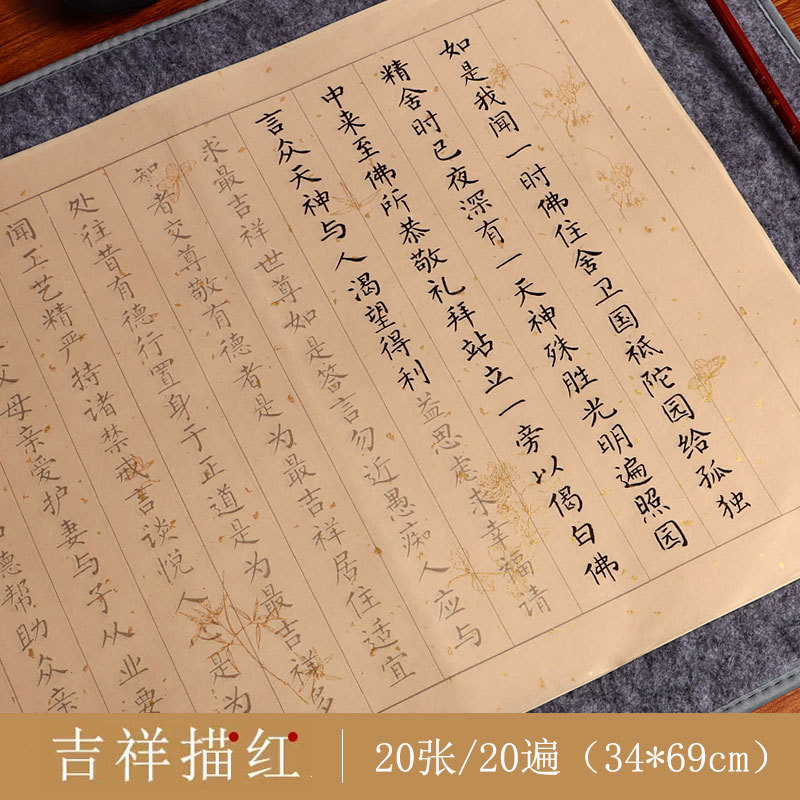 如是我闻一时佛住舍卫国祇陀园给孤独
精舍时已夜深有一天神殊胜光明遍照园
中来至佛所恭敬礼拜站立一旁以偈白佛
言众天神与人渴望得利益思虑求幸福请
求最吉祥世尊如是答言勿近愚痴人应与
知者交尊敬有德者是为最吉祥居住适宜
处往昔有德行置身于正道是为最吉祥多
闻工艺精严持诸禁戒言谈悦人心是为
父母亲爱护妻与子从业要
德帮助众亲
吉祥描红
20张/20遍（34*69cm）